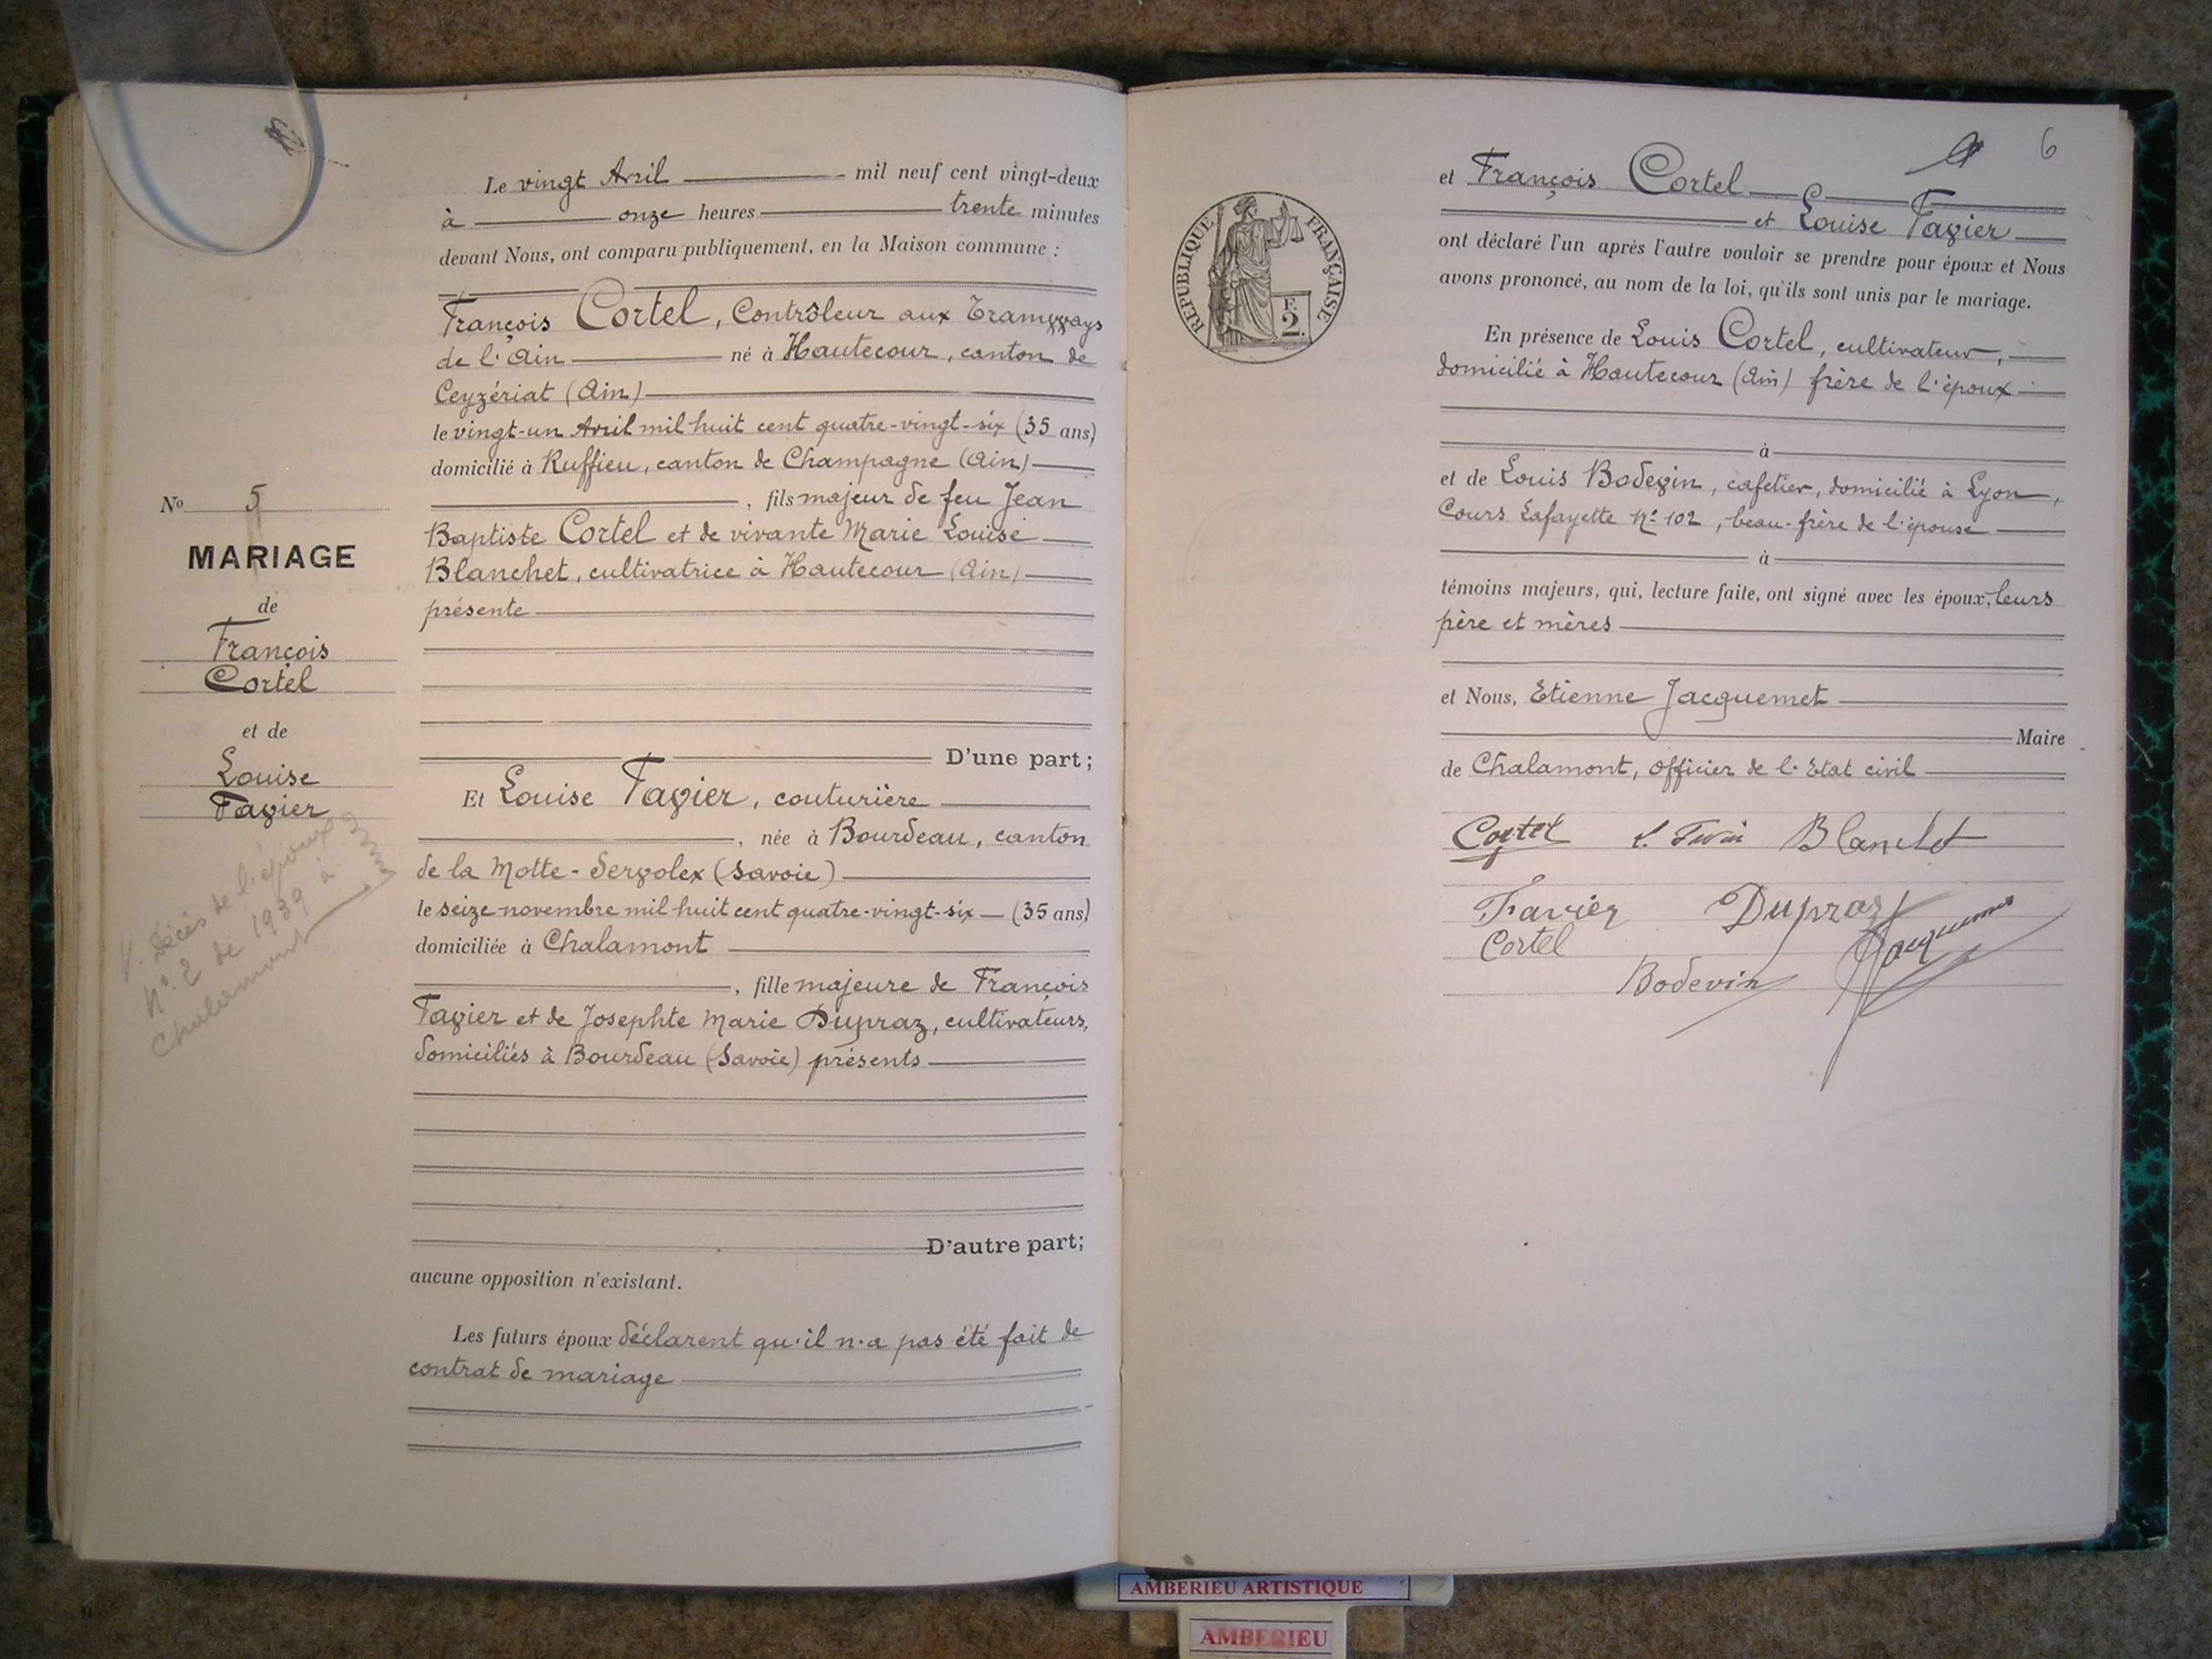 Le vingt Avril mil neuf cent vingt-deux
à onze heures trente minutes
devant Nous, ont comparu publiquement, en la Maison commune :
François Cortel, Contrôleur aux Tramways
de l'Ain né à Hautecour, canton de
Ceyzériat (Ain)
le vingt-un Avril mil huit cent quatre-vingt-six (35 ans)
domicilié à Ruffieu, canton de Champagne (Ain)
, fils majeur de feu Jean
Baptiste Cortel et de vivante Marie Louise
Blanchet, cultivatrice à Hautecour (Ain)
présente
D'une part;
Et Louise Favier, couturière
, née à Bourdeau, canton
de la Motte-Servolex (Savoie)
le seize novembre mil huit cent quatre-vingt-six (35 ans)
domiciliée à Chalamont
, fille majeure de François
Favier et de Josephte Marie Dupraz, cultivateurs,
domiciliés à Bourdeau (Savoie) présents
D'autre part;
aucune opposition n'existant.
Les futurs époux déclarent qu'il n'a pas été fait de
contrat de mariage
No 5
MARIAGE
de
François
Cortel
et de
Louise
Favier
V. Décès de l'époux
N° 2 de 1939 à
Chalamont
6
et François Cortel
et Louise Favier
ont déclaré l'un après l'autre vouloir se prendre pour époux et Nous
avons prononcé, au nom de la loi, qu'ils sont unis par le mariage.
En présence de Louis Cortel, cultivateur,
domicilié à Hautecour (Ain) frère de l'époux
à
et de Louis Bodevin, cafetier, domicilié à Lyon,
Cours Lafayette N° 102, beau-frère de l'épouse
à
témoins majeurs, qui, lecture faite, ont signé avec les époux, leurs
père et mères
et Nous, Etienne Jacquemet
Maire
de Chalamont, officier de l'Etat civil
Cortel L. Favier Blanchet
Favier Dupraz
Cortel Jacquemet
Bodevin
REPUBLIQUE FRANÇAISE
F.
2.
AMBERIEU ARTISTIQUE
AMBERIEU